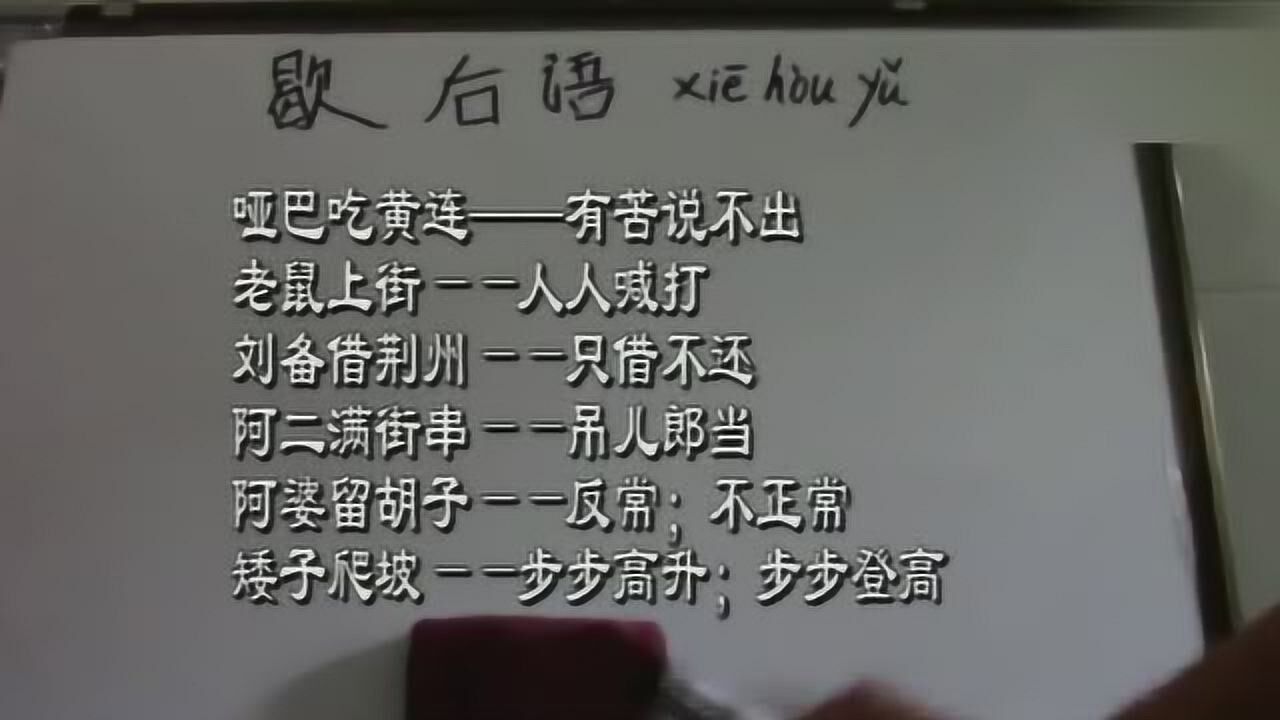 歇后语 xiē hòu yǔ
哑巴吃黄连——有苦说不出
老鼠上街－－人人喊打
刘备借荆州－－只借不还
阿二满街串－－吊儿郎当
阿婆留胡子－－反常；不正常
矮子爬坡－－步步高升；步步登高